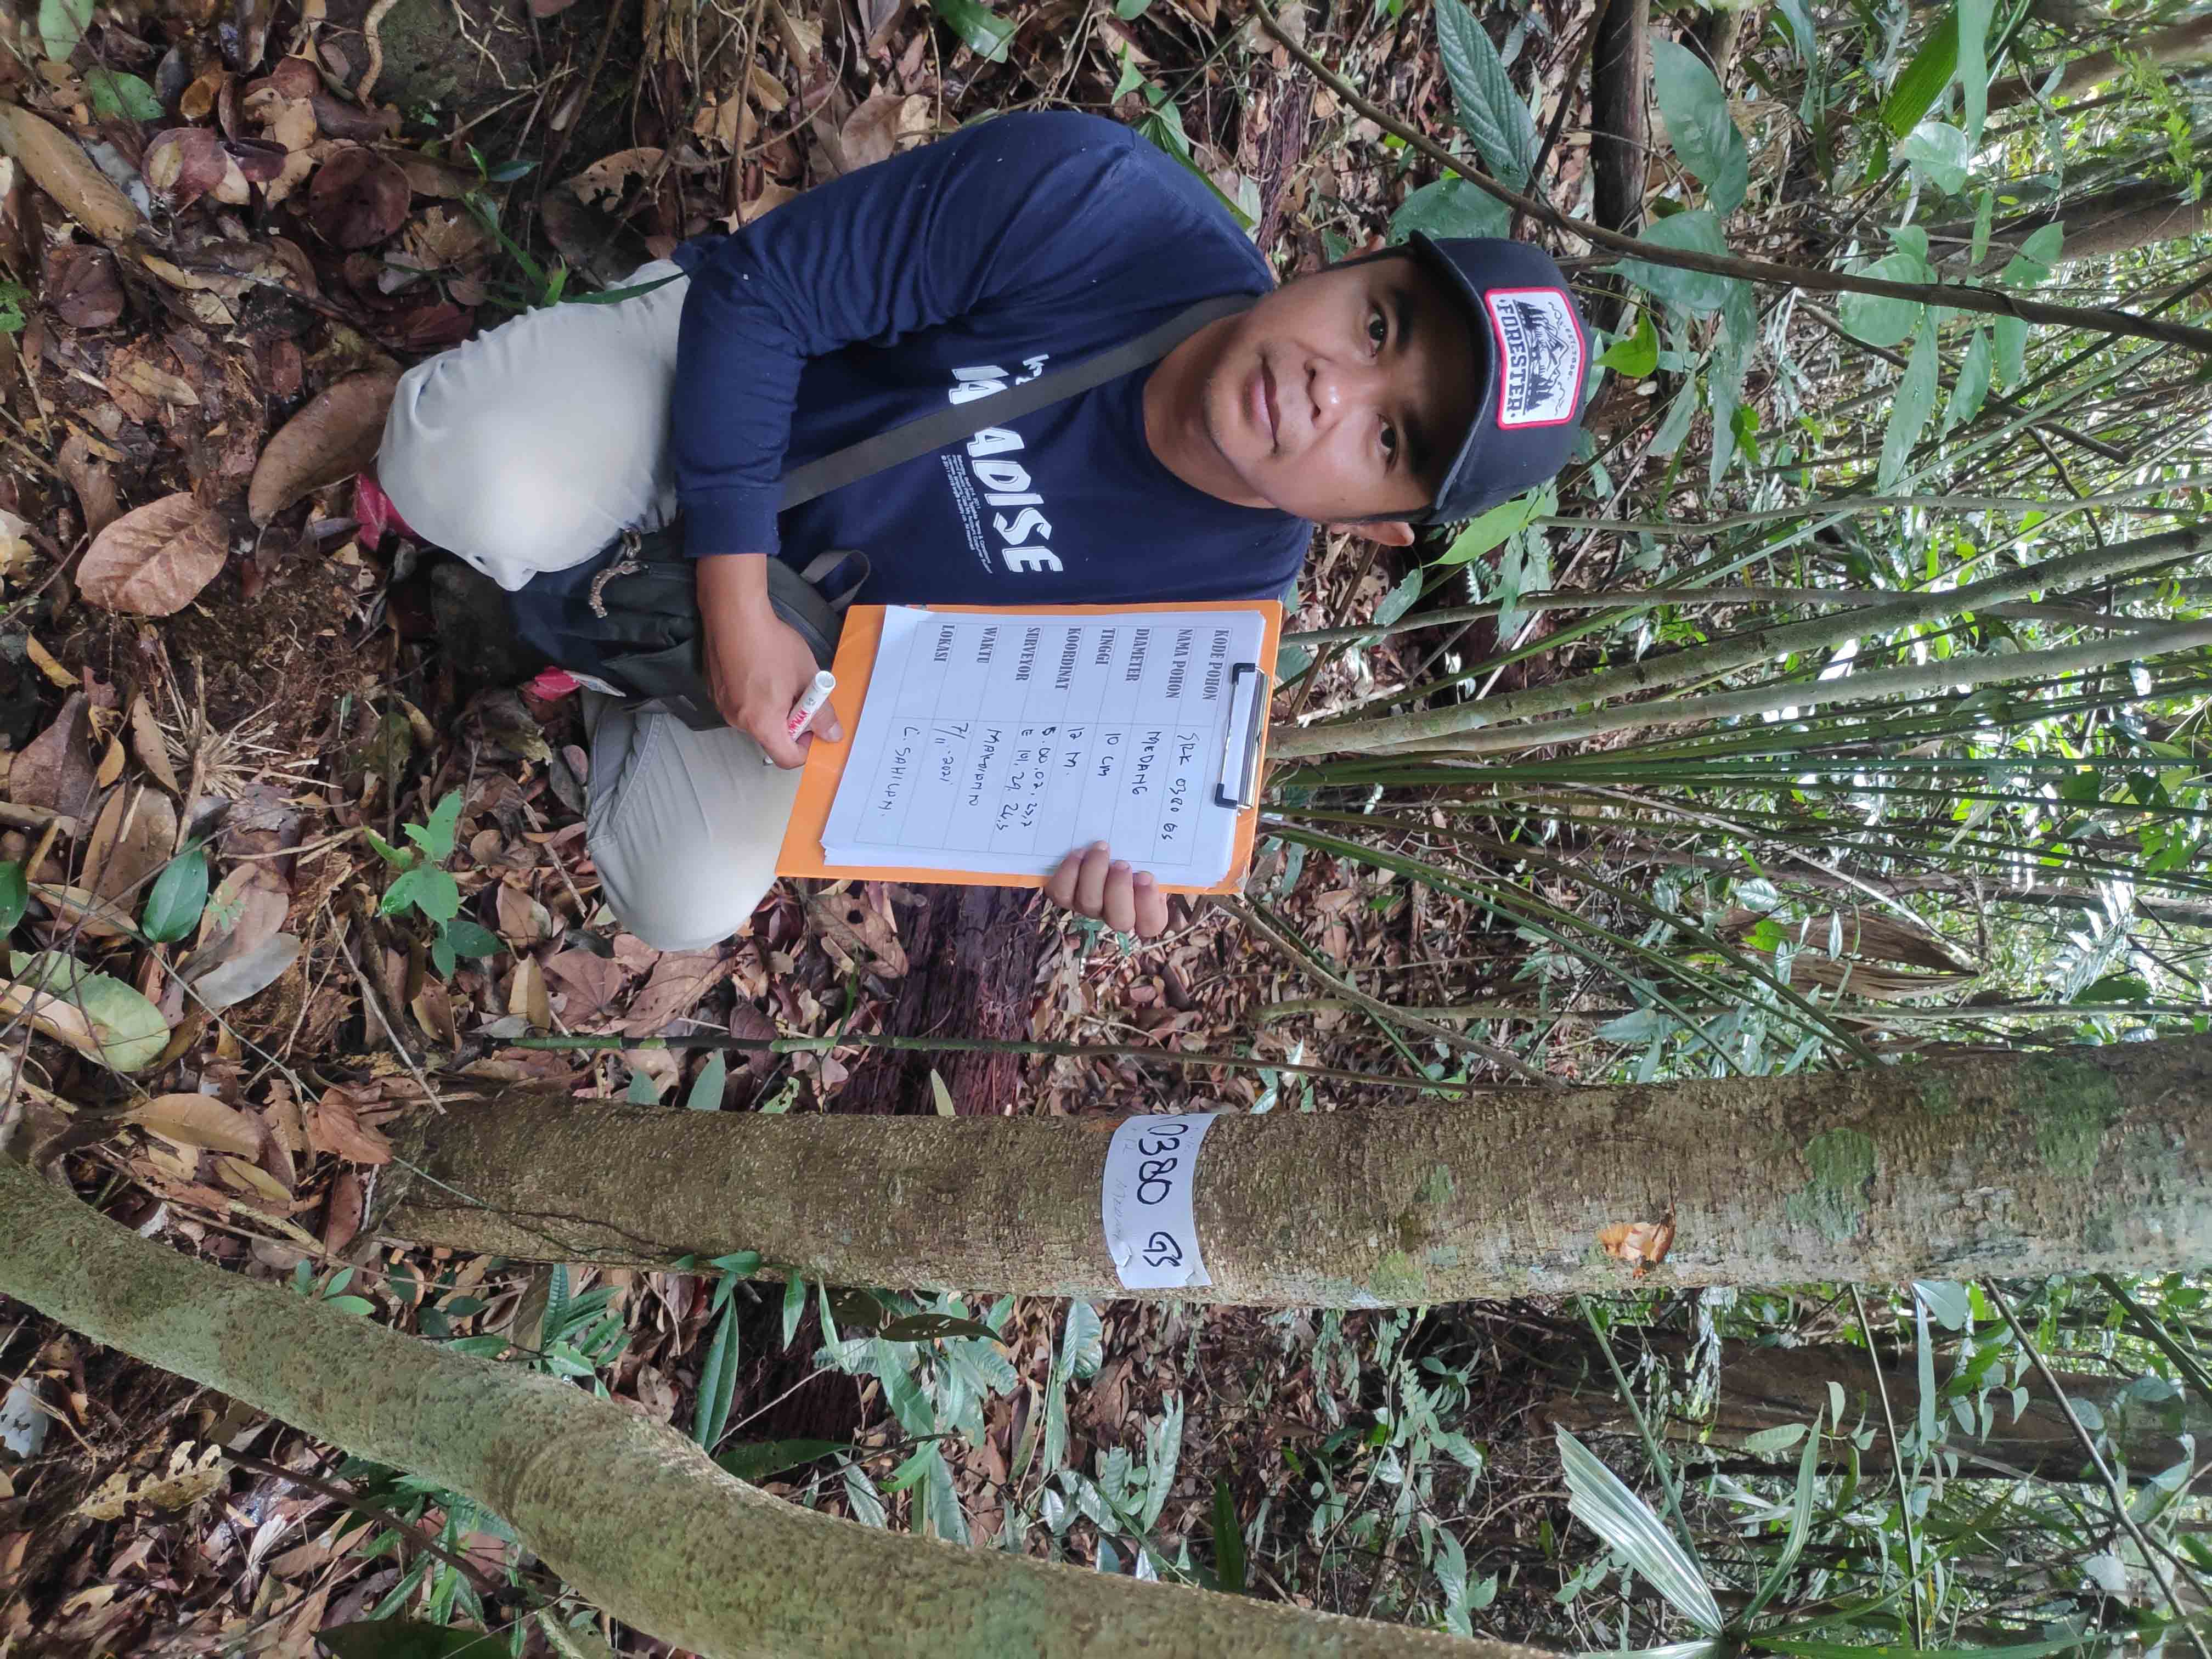 EST. 2000.
·FORESTER·
ADISE
KODE POHON SZK 0380 GS
NAMA POHON MEDANG
DIAMETER 10 cm
TINGGI 12 m.
KOORDINAT S. 00. 07. 23,7
E 101. 29. 26,5
SURVEYOR
WAKTU 7/11 2021
LOKASI L. SAHILAN.
0380 GS